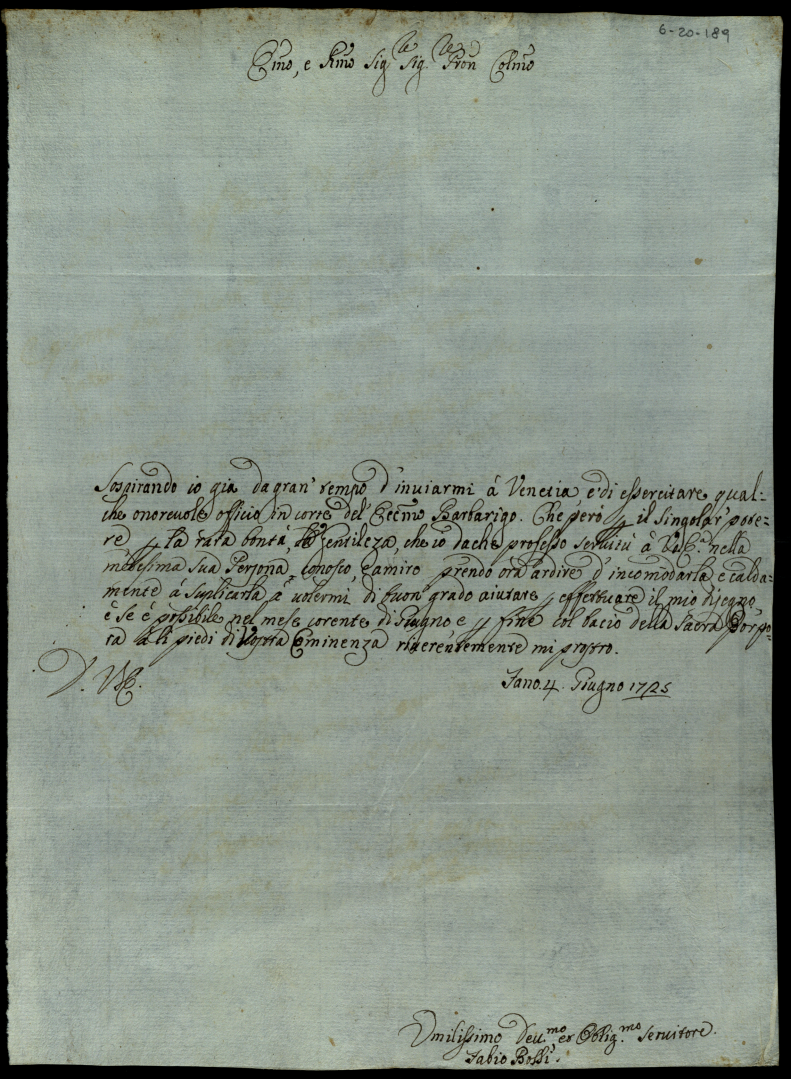 6-20-189
Em̃o, e Rm̃o Sig.re Sig.re Pron Colm̃o
Sospirando io già da gran' tempo d'inuiarmi à Venetia, e di essercitare qual=
che onoreuole officio in corte del' Eccm̃o Barbarigo. Che però p il singolar' pote=
re p la rara bontà, gentileza, che io da che professo seruitù à V.a E.a nella
medesima sua Persona conosco, e amiro prendo ora ardire d'incomodarla e calda=
mente à suplicarla à volermi di buon' grado aiutare p effettuare il mio disegno
e se è possibile nel mese corente di Giugno e p fine col bacio della Sacra Porpo=
ra à li piedi di Vostra Eminenza riuerentemente mi prostro.
D. V.E. Fano. 4. Giugno 1725
Vmilissimo Deu.mo et Oblig.mo Seruitore.
Fabio Bossi.